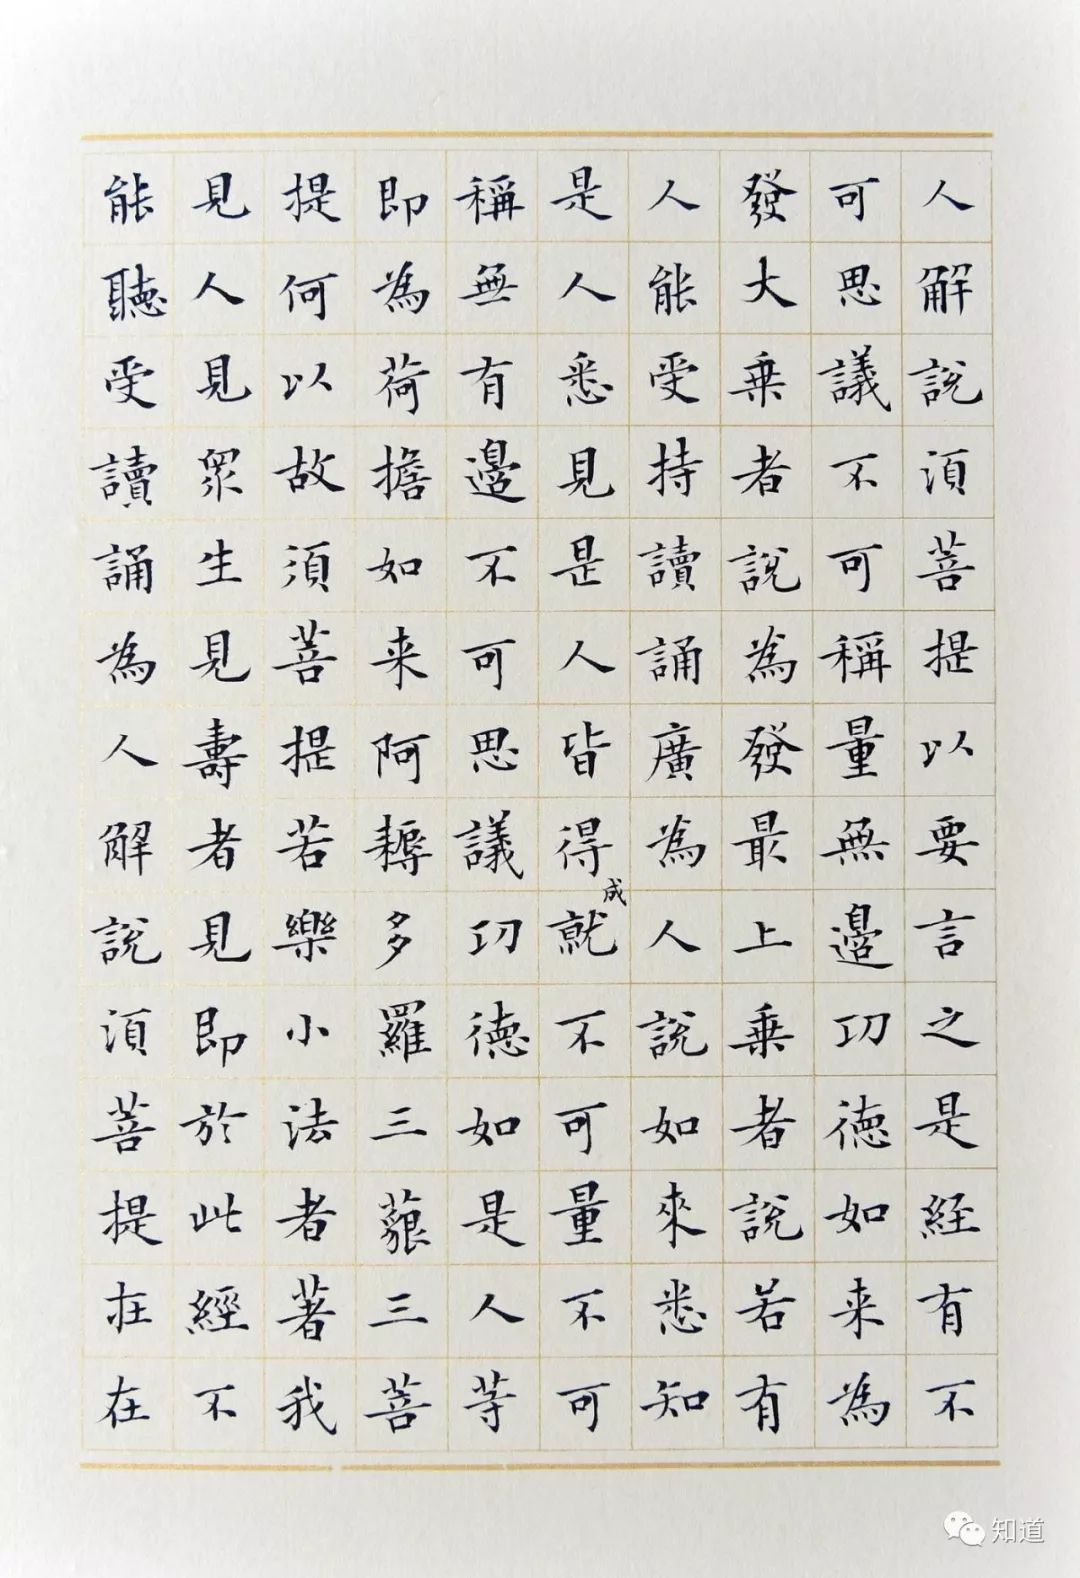 人解說須菩提以要言之是經有不
可思議不可稱量無邊功德如来為
發大乗者說為發最上乗者說若有
人能受持讀誦廣為人說如來悉知
是人悉見是人皆得成就不可量不可
稱無有邊不可思議功德如是人等
即為荷擔如来阿耨多羅三藐三菩
提何以故須菩提若樂小法者著我
見人見眾生見壽者見即於此經不
能聽受讀誦為人解說須菩提在在
知道